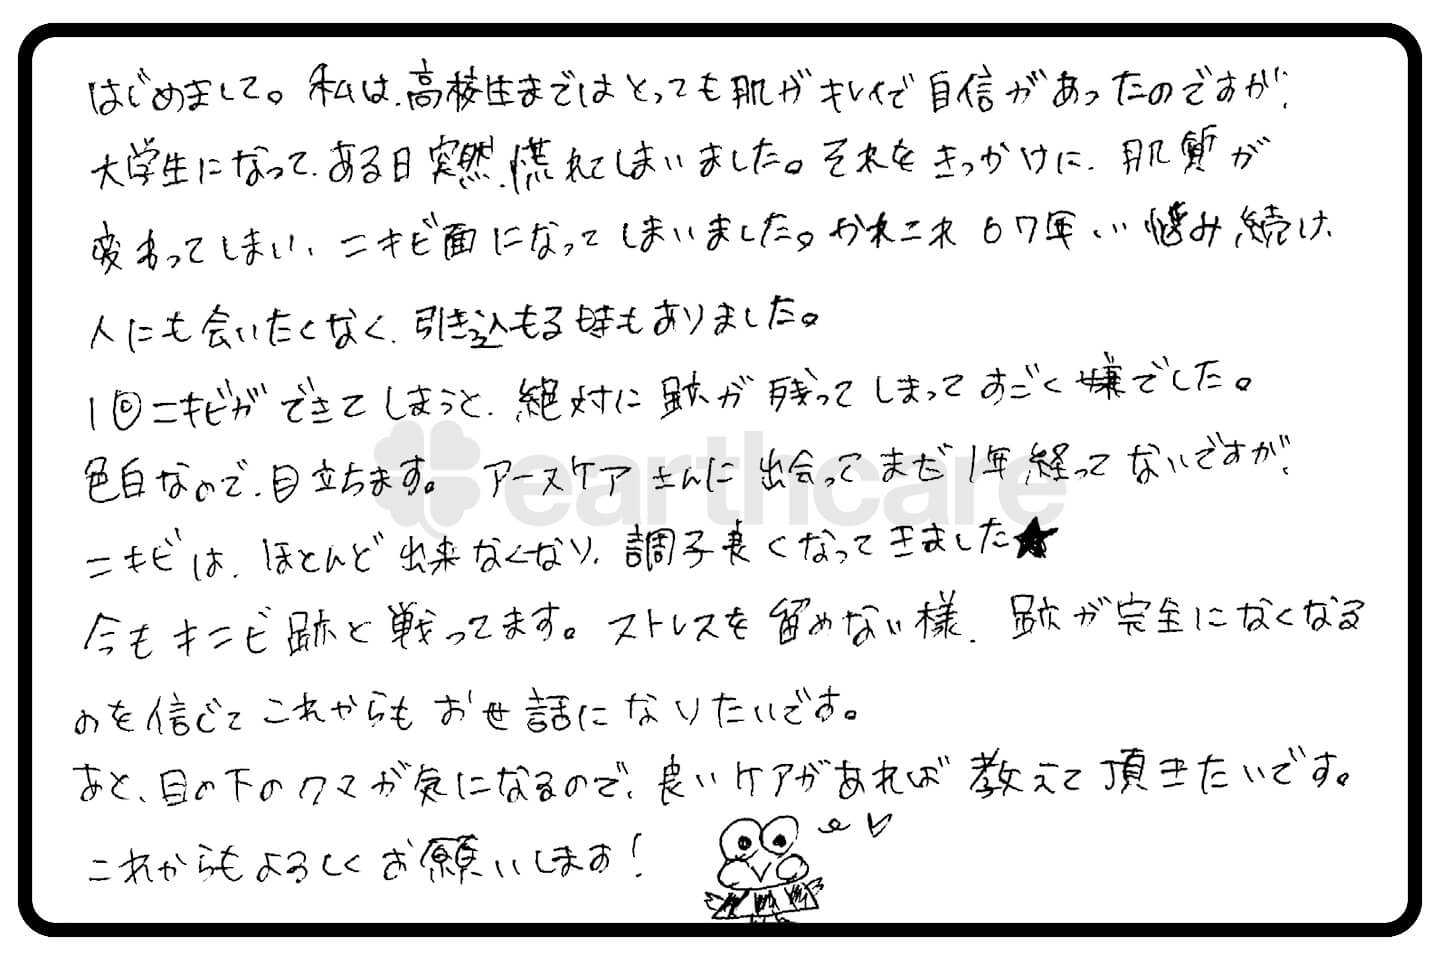 はじめまして。私は、高校生まではとっても肌がキレイで自信があったのですが、
大学生になって、ある日突然、慌れてしまいました。それをきっかけに、肌質が
変わってしまい、ニキビ面になってしまいました。かれこれ67年い悩み続け、
人にも会いたくなく、引き込もる時もありました。
1回ニキビができてしまうと、絶対に跡が残ってしまってすごく嫌でした。
色白なので、目立ちます。アースケアさんに出会ってまだ1年経ってないですが、
earthcare
ニキビは、ほとんど出来なくなり、調子良くなってきました★
今もキニビ跡と戦ってます。ストレスを留めない様、跡が完全になくなる
のを信じてこれからもお世話になりたいです。
あと、目の下のクマが気になるので、良いケアがあれば教えて頂きたいです。
これからもよろしくお願いします！